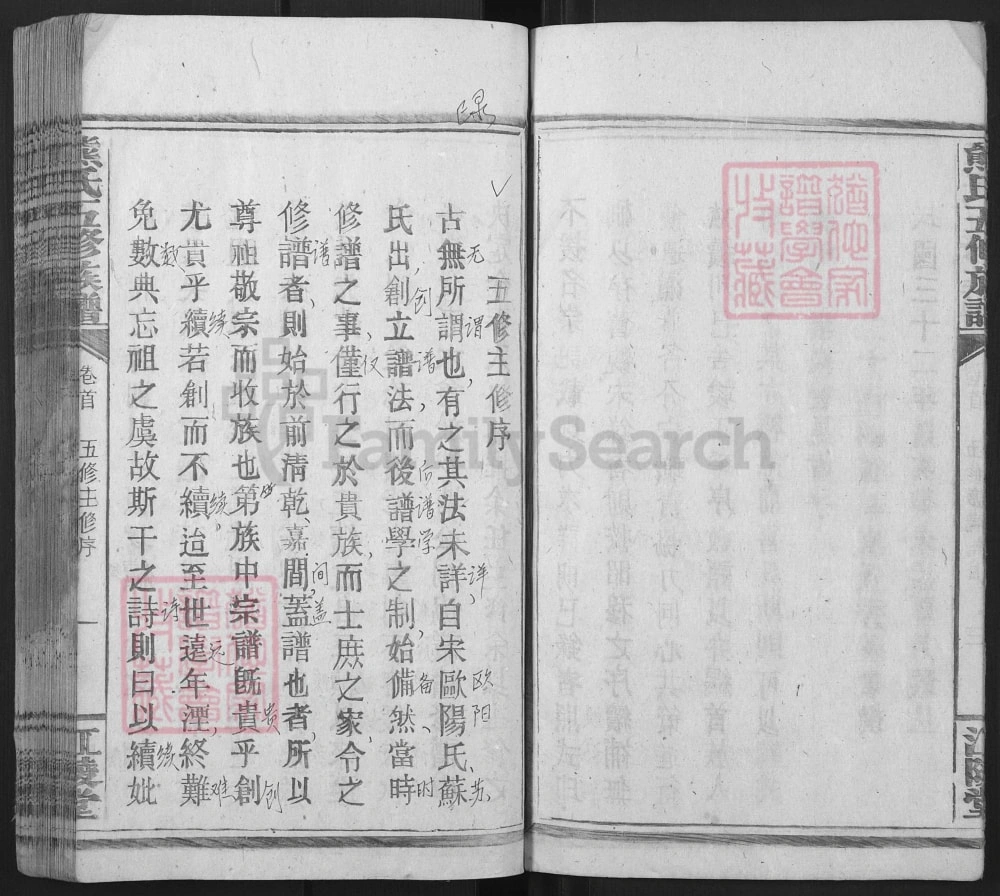 熊氏五修族譜
江陵堂
錄
五修主修序
古無所謂也有之其法未詳自宋歐陽氏蘇
氏出創立譜法而後譜學之制始備然當時
修譜之事僅行之於貴族而士庶之家令之
修譜者則始於前清乾嘉間蓋譜也者所以
尊祖敬宗而收族也第族中宗譜既貴乎創
尤貴乎續若創而不續迨至世遠年湮終難
免數典忘祖之虞故斯干之詩則曰以續妣
无谓 详 欧阳 苏
创 谱 后谱学 备 时
仅
谱 间盖
贵 创
续 续 远 难
数 诗 续
熊氏五修族譜
卷首
五修主修序
一
江陵堂
譜學會
收藏
FamilySearch